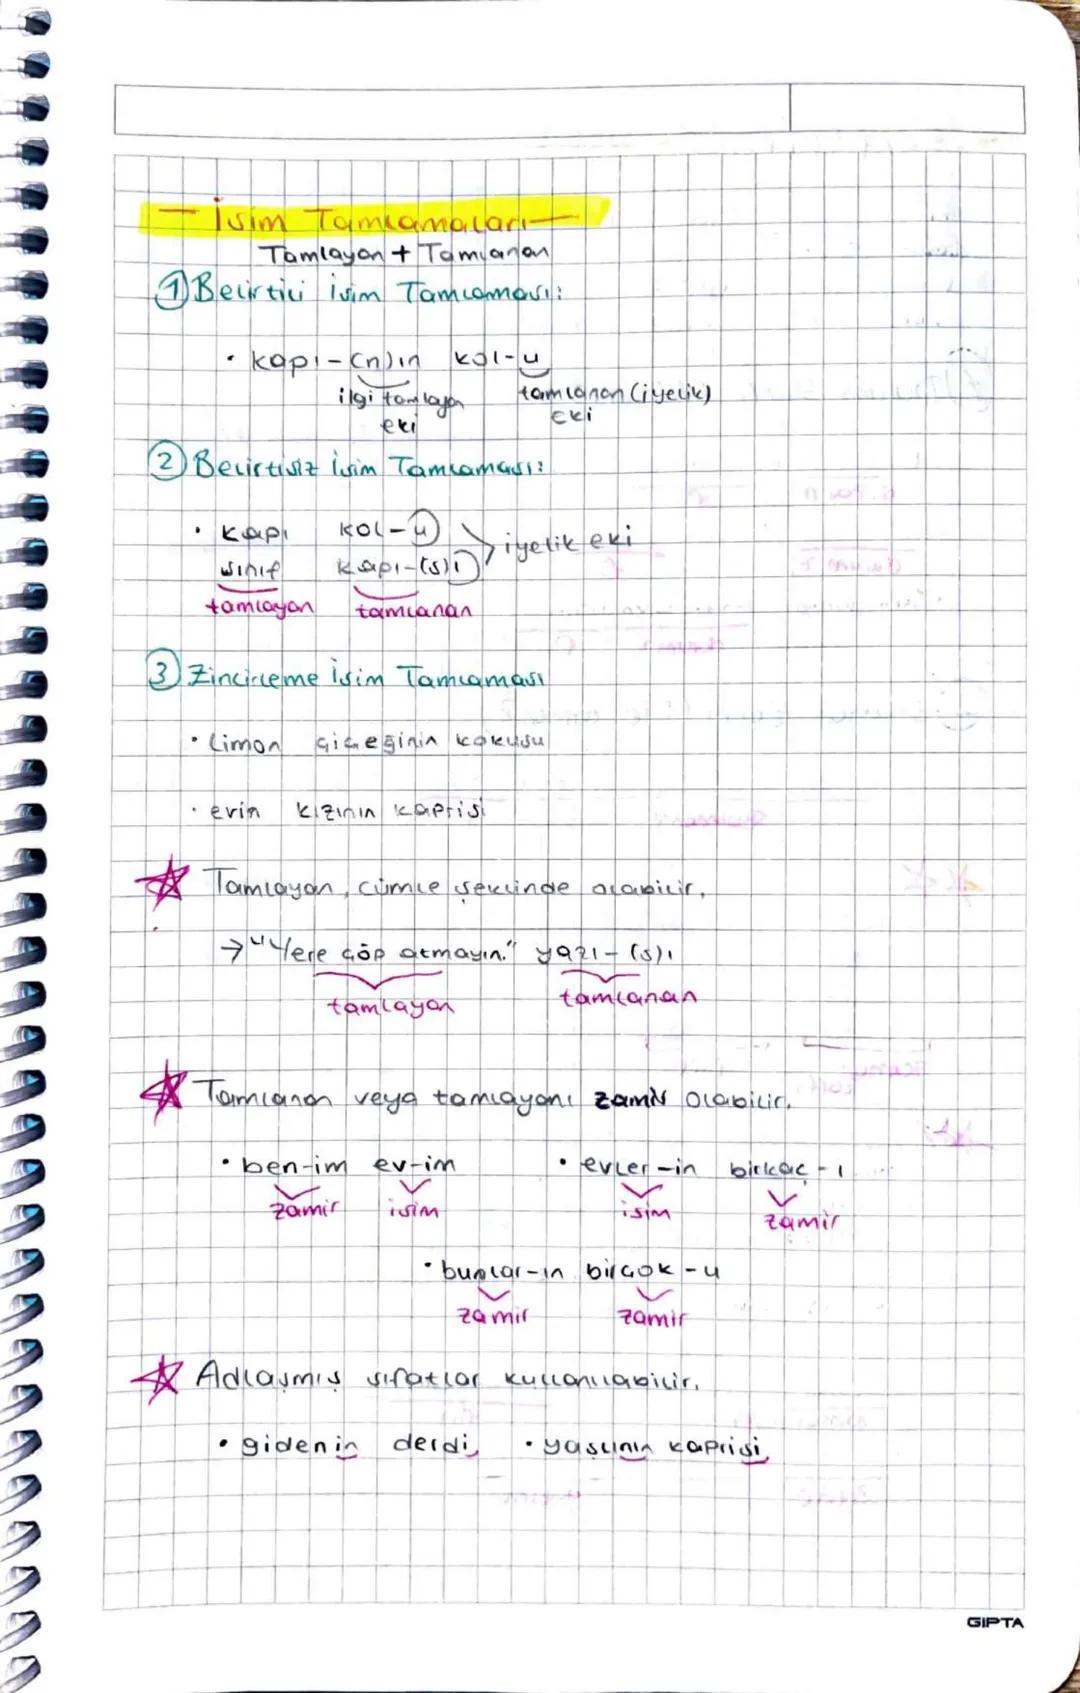 — İsim Tamlamaları —
Tamlayan + Tamlanan
① Belirtili İsim Tamlaması:
• kapı-(n)ın kol-u
ilgi tamlayan eki tamlanan (iyelik) eki
② Belirtisiz İsim Tamlaması:
• kapı kol-u
iyelik eki
sınıf kapı-(s)ı
tamlayan tamlanan
③ Zincirleme İsim Tamlaması
• Limon çiçeğinin kokusu
• evin kızının kaprisi
☆ Tamlayan, cümle şeklinde olabilir.
→ "Yere çöp atmayın." yazı-(s)ı
tamlayan tamlanan
☆ Tamlanan veya tamlayanı zamir olabilir.
• ben-im ev-im • evler-in birkaç-ı
zamir isim isim zamir
• bunlar-ın birçok-u
zamir zamir
☆ Adlaşmış sıfatlar kullanılabilir.
• gidenin derdi • yaşlının kaprisi
GIPTA